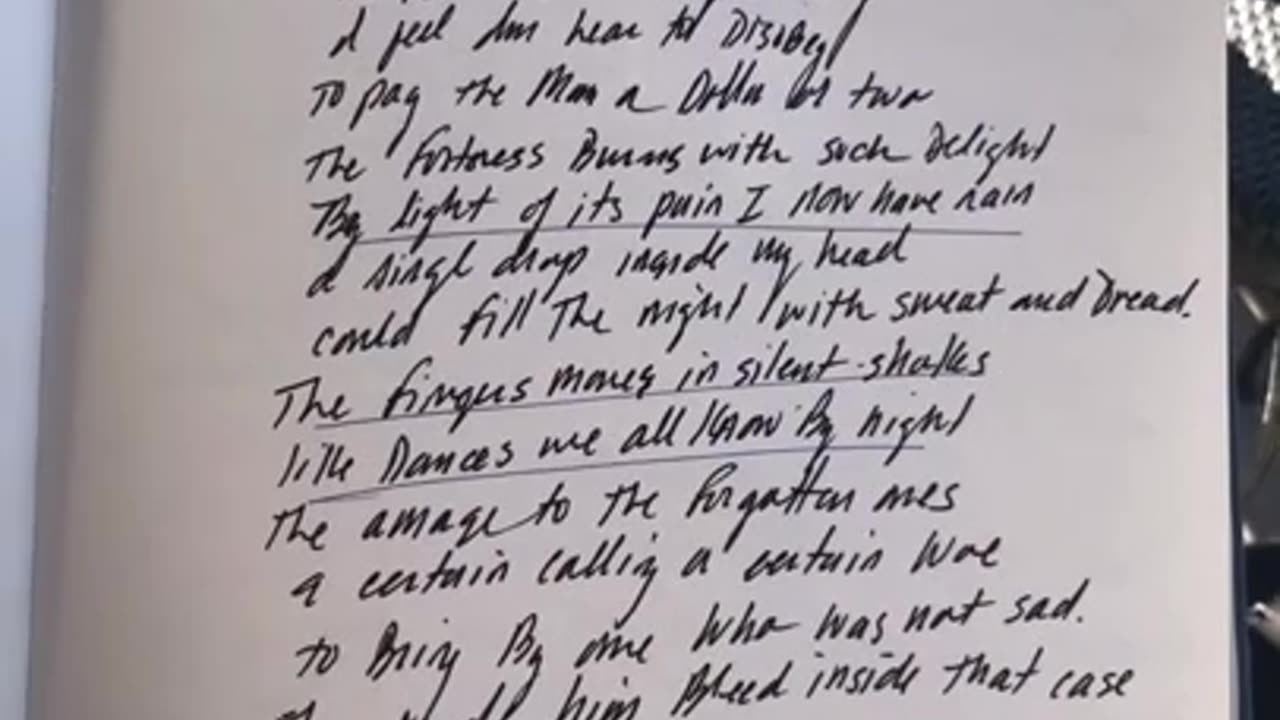 I feel I'm hear to Disobey
To pay the Man a Dollar or two
The fortress Burns with such Delight
By light of its pain I now have rain
a singl drop inside my head
could fill The night with sweat and Dread.
The fingers moves in silent
like Dances we all Know By night
The to the forgotten ones
a certain calling a certain woe
to Bring By one who was not sad.
him Bleed inside that case